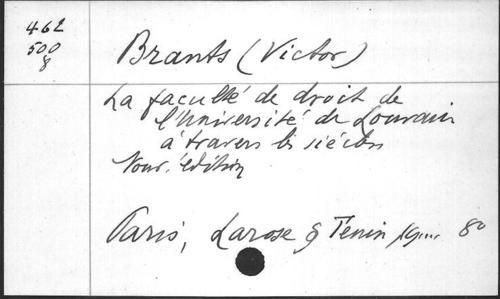 462
500
8
Brants (Victor)
La faculté de droit de
l'Université de Louvain
à travers les siècles
Nouv. édition
Paris, Larose & Tenin 8º